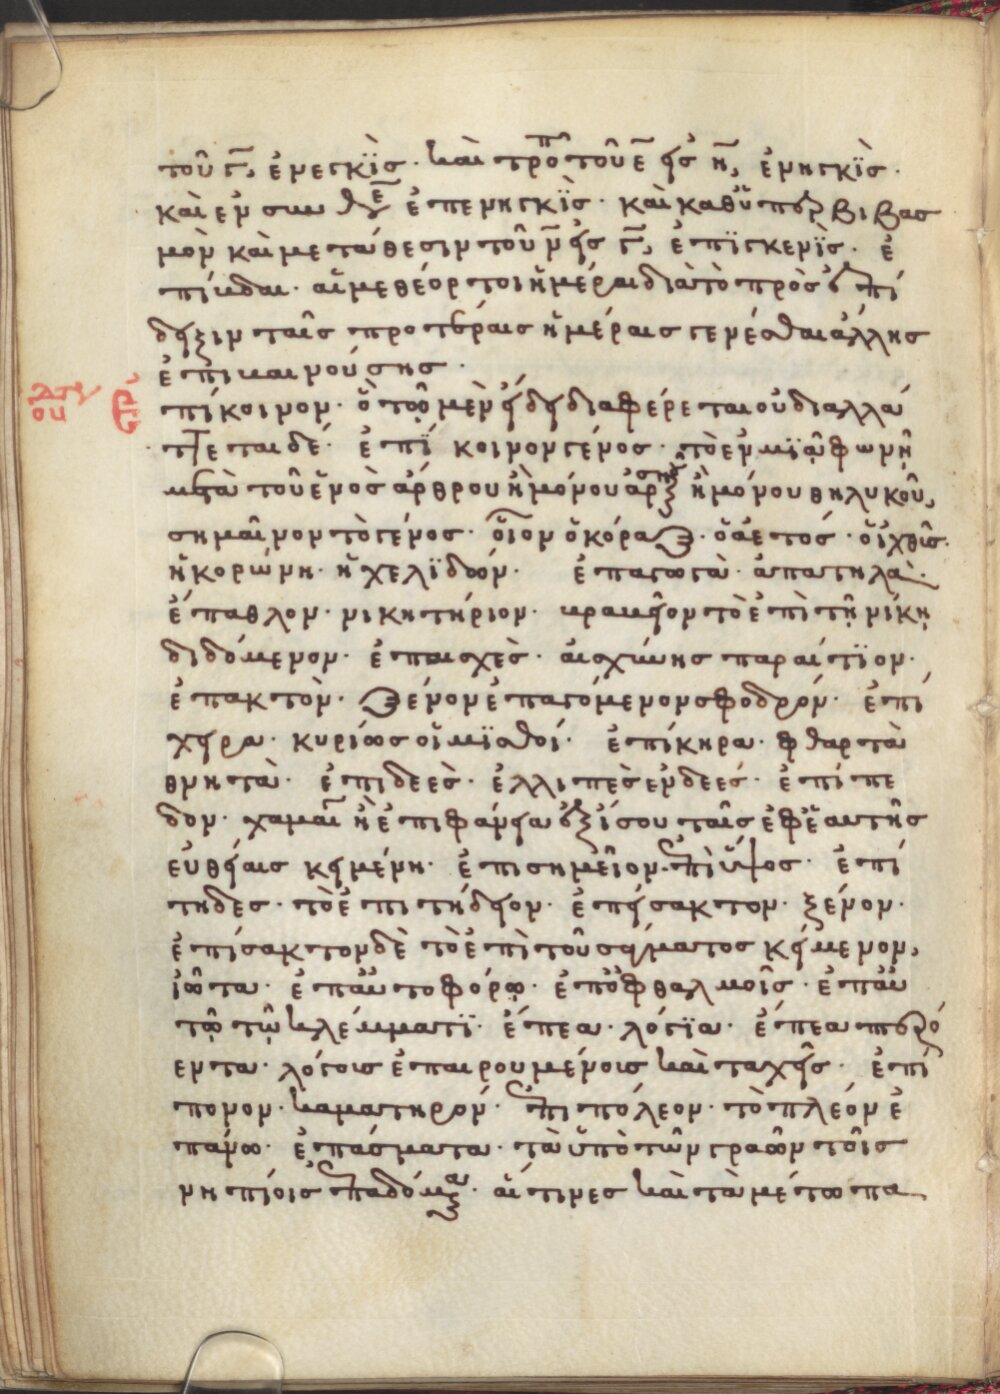 τοῦ γ̄, ἐνεγκῒς. καὶ τροπῇ τοῦ ε̄ εἰς η̄, ἐνηγκῒς.
καὶ ἐν συν ἐπενηγκῒς. καὶ καθ' ὑπερβιβασ
μὸν καὶ μετάθεσιν τοῦ ν̄ εἰς γ̄, ἐπϊγκενῒς. ἐ
πίβδαι. αἱ μεθέορτοι ἡμέραι διὰ τὸ πρὸς ἐπί
δειξιν ταῖς προτέραις ἡμέραις γενέσθαι ἄλλης
ἐπικαινούσης.
ἐπίκοινον. ὅτω μὲν εἴδει διαφέρεται οὐ διαλλά
ττεται δέ. ἐπῒ κοινον γένος. τὸ ἐν μϊᾷ φωνῇ
μετὰ τοῦ ἑνὸς ἄρθρου ἢ μόνου ἀρσενικοῦ ἢ μόνου θηλυκοῦ,
σημαῖνον τὸ γένος. οἷον ὁ κόραξ. ὁ ἀετός. ὁ ἰχθῦς.
ἡ κορώνη. ἡ χελϊδών. ἐπαγωγὰ. ἀπατηλὰ.
ἔπαθλον. νικητήριον. βραβεῖον τὸ ἐπὶ τῇ νίκῃ
διδόμενον. ἐπαισχὲς. αἰσχύνης παραίτϊον.
ἐπακτὸν. ξένον ἐπαγόμενον σφοδρόν. ἐπί
χειρα. κυρίως οἱ μϊσθοί. ἐπίκηρα. φθαρτὰ
θνητὰ. ἐπιδεὲς. ἐλλιπὲς ἐνδεές. ἐπίπε
δον. χαμαὶ ἢ ἐπιφάνεια ἐξ ἴσου ταῖς ἐφ' ἑαυτῆς
εὐθείαις κειμένη. ἐπισημεῖον. ἐπὶ ὕψος. ἐπί
τηδες. τὸ ἐπιτήδειον. ἐπείσακτον. ξένον.
ἐπίσακτον δὲ τὸ ἐπὶ τοῦ σάγματος κείμενον,
ἰῶτα. ἐπαυτοφόρῳ. ἐπ' ὀφθαλμοῖς. ἐπ' αὐ
τῷ τῷ κλέμματϊ. ἔπεα. λόγϊα. ἔπεα πτερό
εντα. λόγοις ἐπαιρουμένοις καὶ ταχεῖς. ἐπί
πονον. καματηρόν. ἐπιπόλεον. τὸ πλεόν ἐ
πάνω. ἐπάσματα. τὰ ὑπὸ τῶν γραῶν τοῖς
νηπίοις ἐπαδόμενα. αἵτινες καὶ τὰ μέτωπα